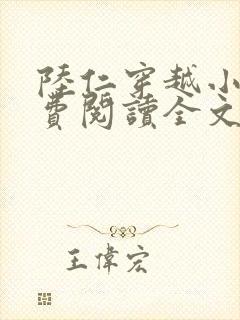 陸仁穿越小
費閱讀全文
王偉宏